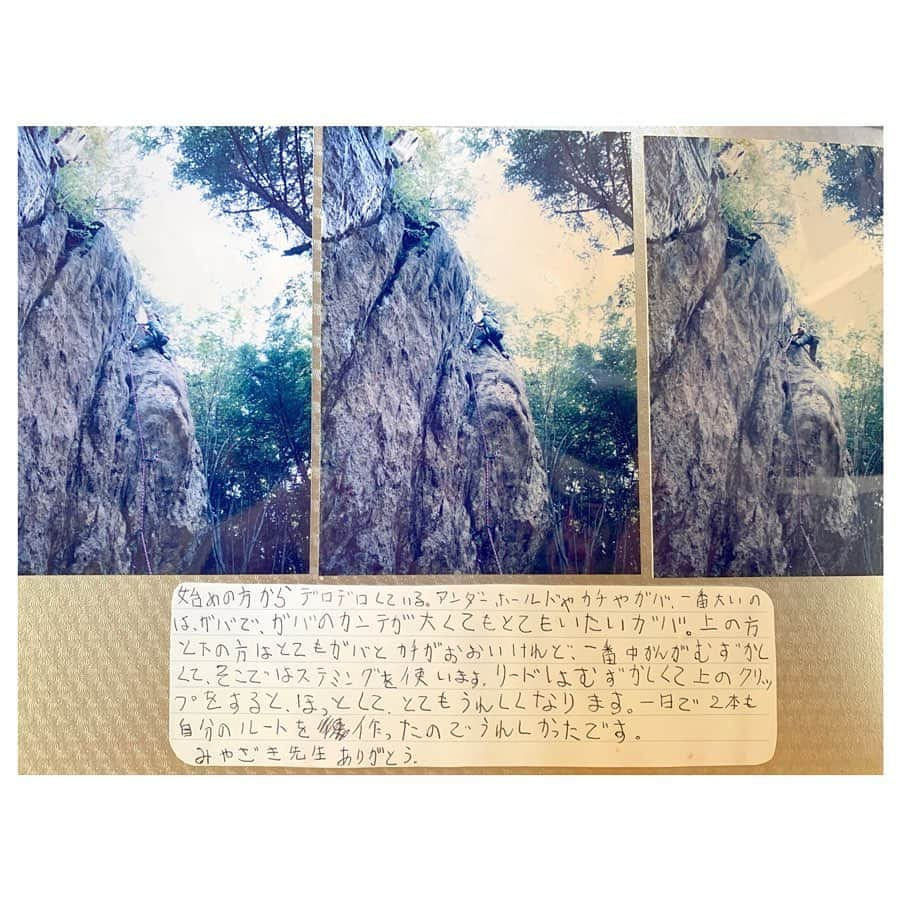 始めの方からデロデロしている。アンダーホールドやカチやガバ、一番大いの
は、ガバで、ガバのカンテが大くてもとてもいたいガバ。上の方
と下の方はとてもガバとカチがおおいけれど、一番中かんがむずかし
くて、そこではステミングを使います。リードはむずかしくて上のクリッ
プをすると、ほっとして、とてもうれしくなります。一日で2本も
自分のルートを作ったのでうれしかったです。
みやざき先生ありがとう.